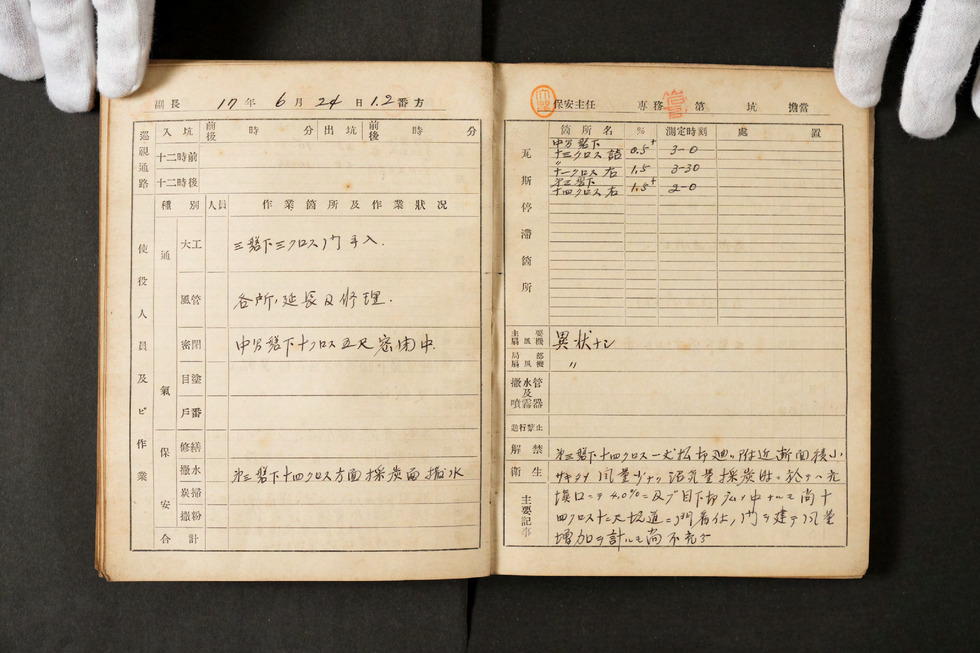 副長 17年 6月 24日 1.2番方
巡視通路
入坑 前後 時 分 出坑 前後 時 分
十二時前
十二時後
使役人員及ビ作業
種別 人員 作業箇所及作業狀況
通氣
大工 三盤下三クロス門手入.
風管 各所,延長及修理.
密閉 中 盤下十クロス五尺密閉中.
目塗
戶番
保安
修繕
撒水 第三盤下十四クロス方面採炭面撒水
炭掃
撒粉
合計
保安主任 専務 第 坑 擔當
瓦斯停滯箇所
箇所名 % 測定時刻 處置
盤下
十三クロス 0.5+ 3-0
〃
十一クロス右 1.5 3-30
第三盤下
十四クロス右 1.5+ 2-0
主要扇風機 異狀ナシ
局部扇風機 〃
撒水管及噴霧器
進行禁止
解禁
衛生
主要記事
第三盤下十四クロス 附近斷面積小
風量少ナク 採炭時ニ於テハ充
塡口ニテ 4.0%ニ及ブ目下 中ナルモ尚十
四クロス 坑道ニ門 ,門ヲ建テ風量
增加ヲ計ルモ尚不充分